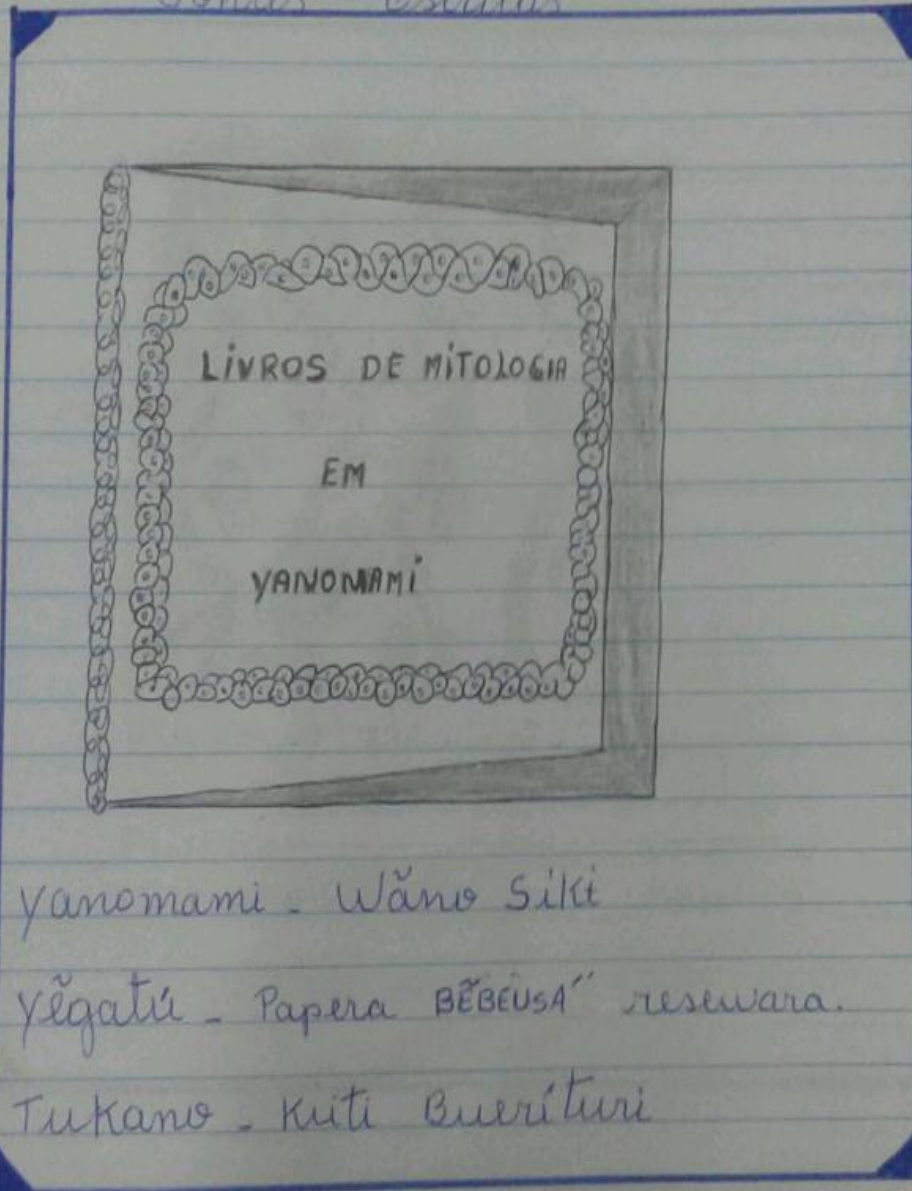 LIVROS DE MITOLOGIA
EM
YANOMAMI
Yanomami - Wãno Siki
Yẽgatú - Papera BẼBEUSA" resewara.
Tukano - Kuti Buerituri